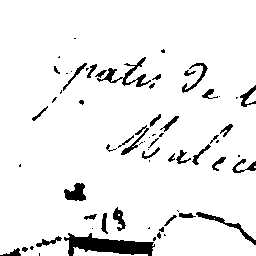 patis de l
Malec
718